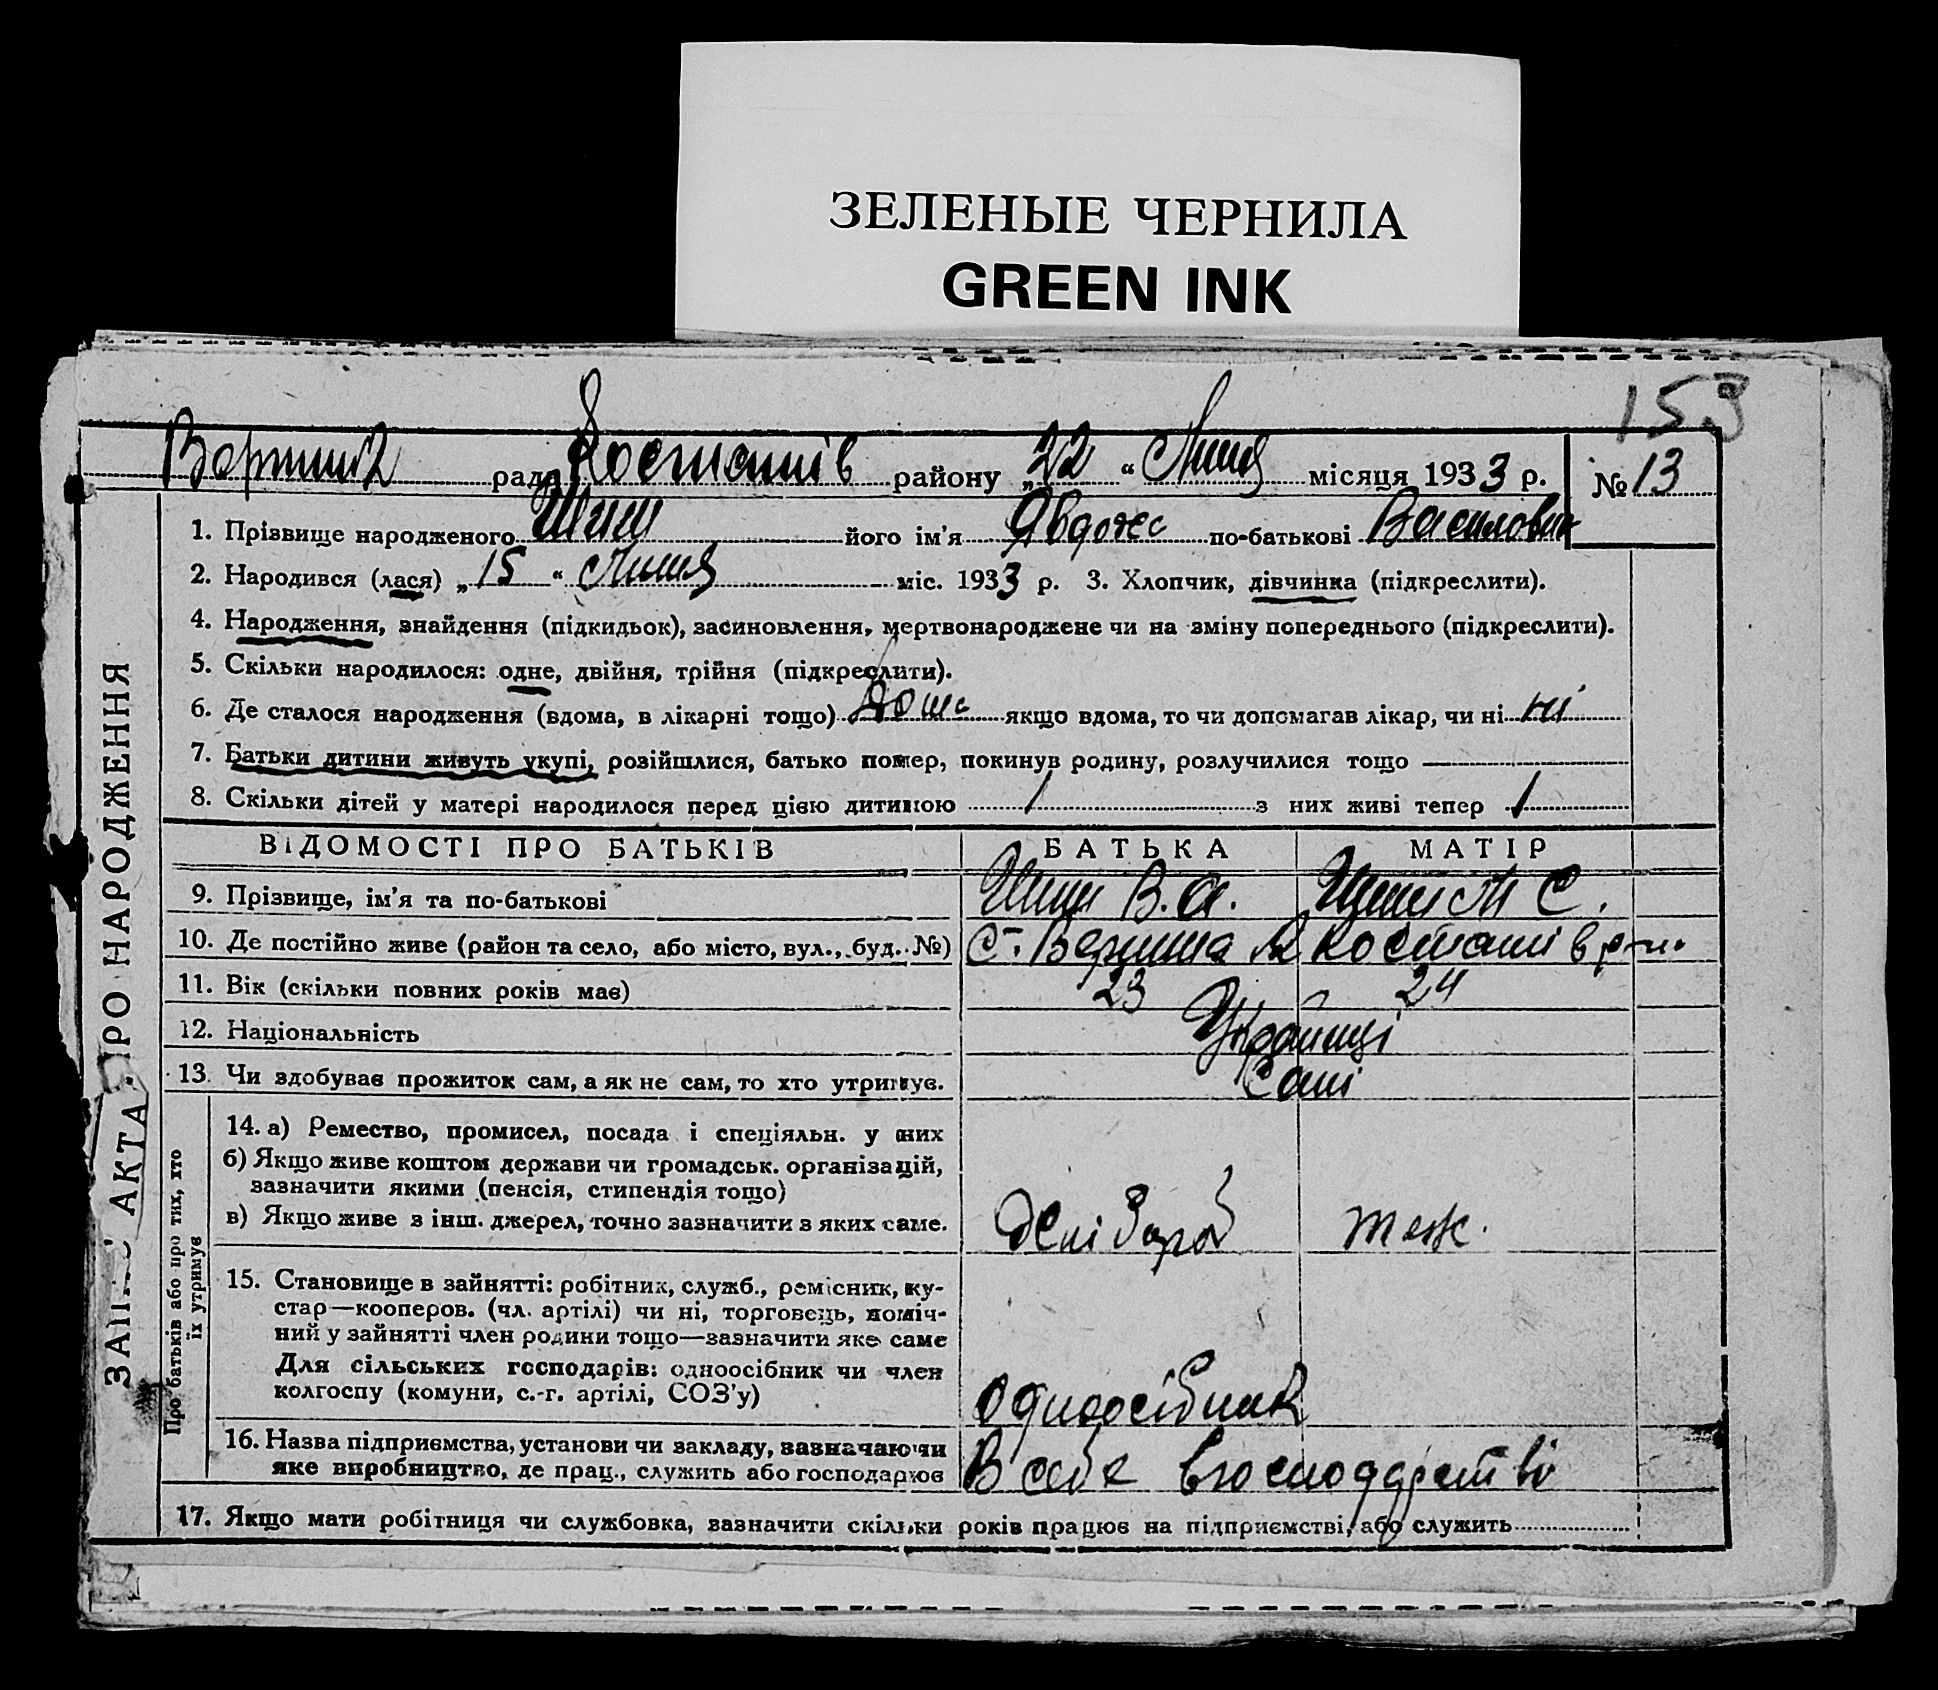 ЗЕЛЕНЫЕ ЧЕРНИЛА
GREEN INK
153
рада районy „22“ Липця місяця 1933 р. № 13
1. Прізвище народженого його ім'я Явдоха по-батькові Василовна
2. Народився (лася) „15“ Липця міс. 1933 р. 3. Хлопчик, дівчинка (підкреслити).
4. Народження, знайдення (підкидьок), засиновлення, мертвонароджене чи на зміну попереднього (підкреслити).
5. Скільки народилося: одне, двійня, трійня (підкреслити).
6. Де сталося народження (вдома, в лікарні тощо) Дома якщо вдома, то чи допомагав лікар, чи ні ні
7. Батьки дитини живуть укупі, розійшлися, батько помер, покинув родину, розлучилися тощо
8. Скільки дітей у матері народилося перед цією дитиною 1 з них живі тепер 1
ВІДОМОСТІ ПРО БАТЬКІВ БАТЬКА МАТІР
9. Прізвище, ім'я та по-батькові В. А. М С.
10. Де постійно живе (район та село, або місто, вул., буд. №) с.
11. Вік (скільки повних років має) 23 24
12. Національність Українці
13. Чи здобуває прожиток сам, а як не сам, то хто утримує. Самі
14. а) Ремество, промисел, посада і спеціяльн. у них
б) Якщо живе коштом держави чи громадськ. організацій,
зазначити якими (пенсія, стипендія тощо)
в) Якщо живе з інш. джерел, точно зазначити з яких саме. теж.
15. Становище в зайнятті: робітник, служб., ремісник, ку-
стар—кооперов. (чл. артілі) чи ні, торговець, поміч-
ний у зайнятті член родини тощо—зазначити яке саме
Для сільських господарів: одноосібник чи член
колгоспу (комуни, с.-г. артілі, СОЗ'у) одноосібник
16. Назва підприємства, установи чи закладу, зазначаючи
яке виробництво, де прац., служить або господарює В себе в господарстві
17. Якщо мати робітниця чи службовка, зазначити скільки років працює на підприємстві, або служить
ЗАПИС АКТА ПРО НАРОДЖЕННЯ
Про батьків або про тих, хто
їх утримує